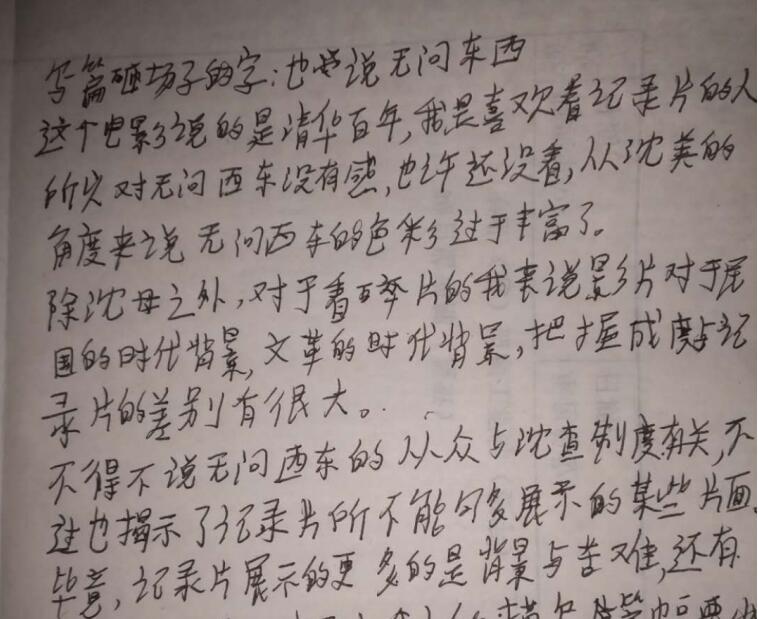 写篇砸场子的字:也说说无问东西
这个电影说的是清华百年,我是喜欢看记录片的人
所以对无问西东没有感,也许还没看,从沈美的
角度来说 无问西东的色彩过于丰富了。
除沈母之外,对于看 片的我来说影片对于民
国的时代背景,文革的时代背景,把握成度与记
录片的差别有很大。
不得不说无问西东的从众与沈查制度有关,不
过也揭示了记录片所不能够多展示的某些片面,
毕竟,记录片展示的更多的是背景与苦难,还有